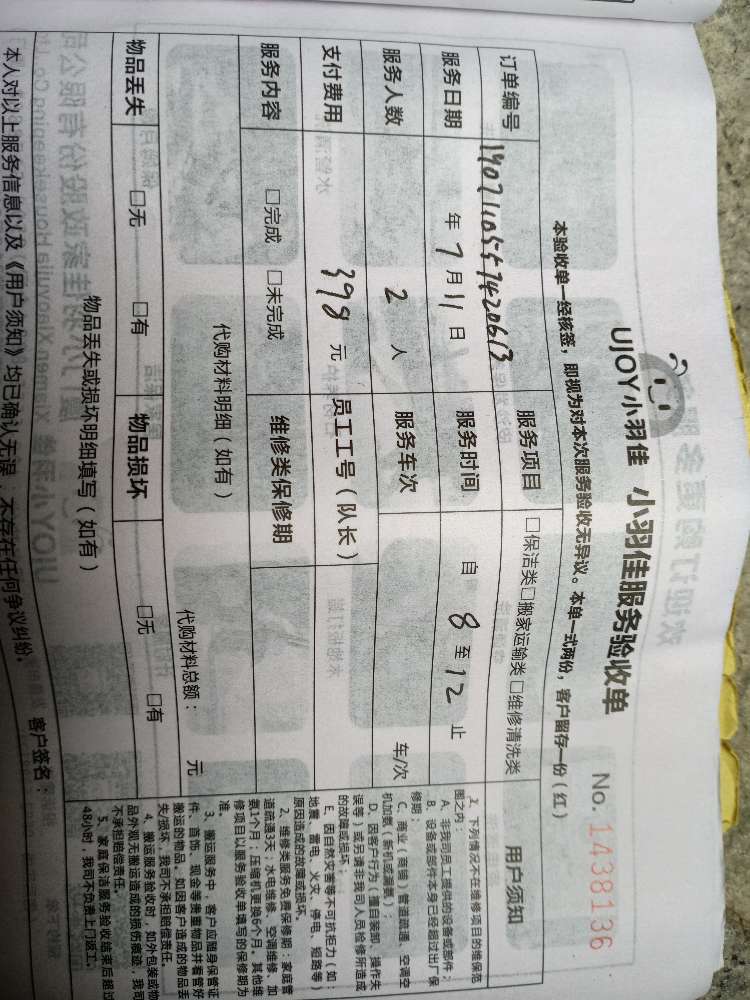 UJOY小羽佳 小羽佳服务验收单 No. 1438136
本验收单一经核签，即视为对本次服务验收无异议。本单一式两份，客户留存一份（红）
订单编号 1907110557420613 服务项目 □保洁类□搬家运输类□维修清洗类
服务日期 年 7 月 11 日 服务时间 自 8 至 12 止
服务人数 2 人 服务车次 车/次
支付费用 398 元 员工工号（队长）
服务内容 □完成 □未完成 维修类保修期
代购材料明细（如有）
代购材料总额： 元
物品丢失 □无 □有 物品损坏 □无 □有
物品丢失或损坏明细填写（如有）
本人对以上服务信息以及《用户须知》均已确认无误，不存在任何争议纠纷。
客户签名：
用户须知
1、下列情况不在维修项目的维保范
围之内：
A、非我司员工提供的设备或部件；
B、设备或部件本身已经超过出厂保
修期；
C、商业（商铺）管道疏通、空调空
机加氨（新机或漏氨）；
D、因客户行为（擅自装卸、操作失
误等）或另请非我司人员检修而造成
的故障或损坏；
E、因自然灾害等不可抗拒力（如：
地震、雷电、火灾、停电、短路等）
原因造成的故障或损坏。
2、维修类服务免费保修期：家庭管
道疏通3天；水电维修、空调维修、加
氨1个月；压缩机更换6个月。其他维
修项目以服务验收单填写的保修期为
准。
3、搬运服务中，客户应随身保管证
件、首饰、现金等贵重物品并看管好
搬运的物品。如因客户造成的物品丢
失/损坏，我司不承担赔偿责任。
4、搬运服务验收时，如外包装或物
品外观无搬运造成的损伤痕迹，我司
不承担赔偿责任。
5、家庭保洁服务验收结束后超过
48小时，我司不负责上门返工。